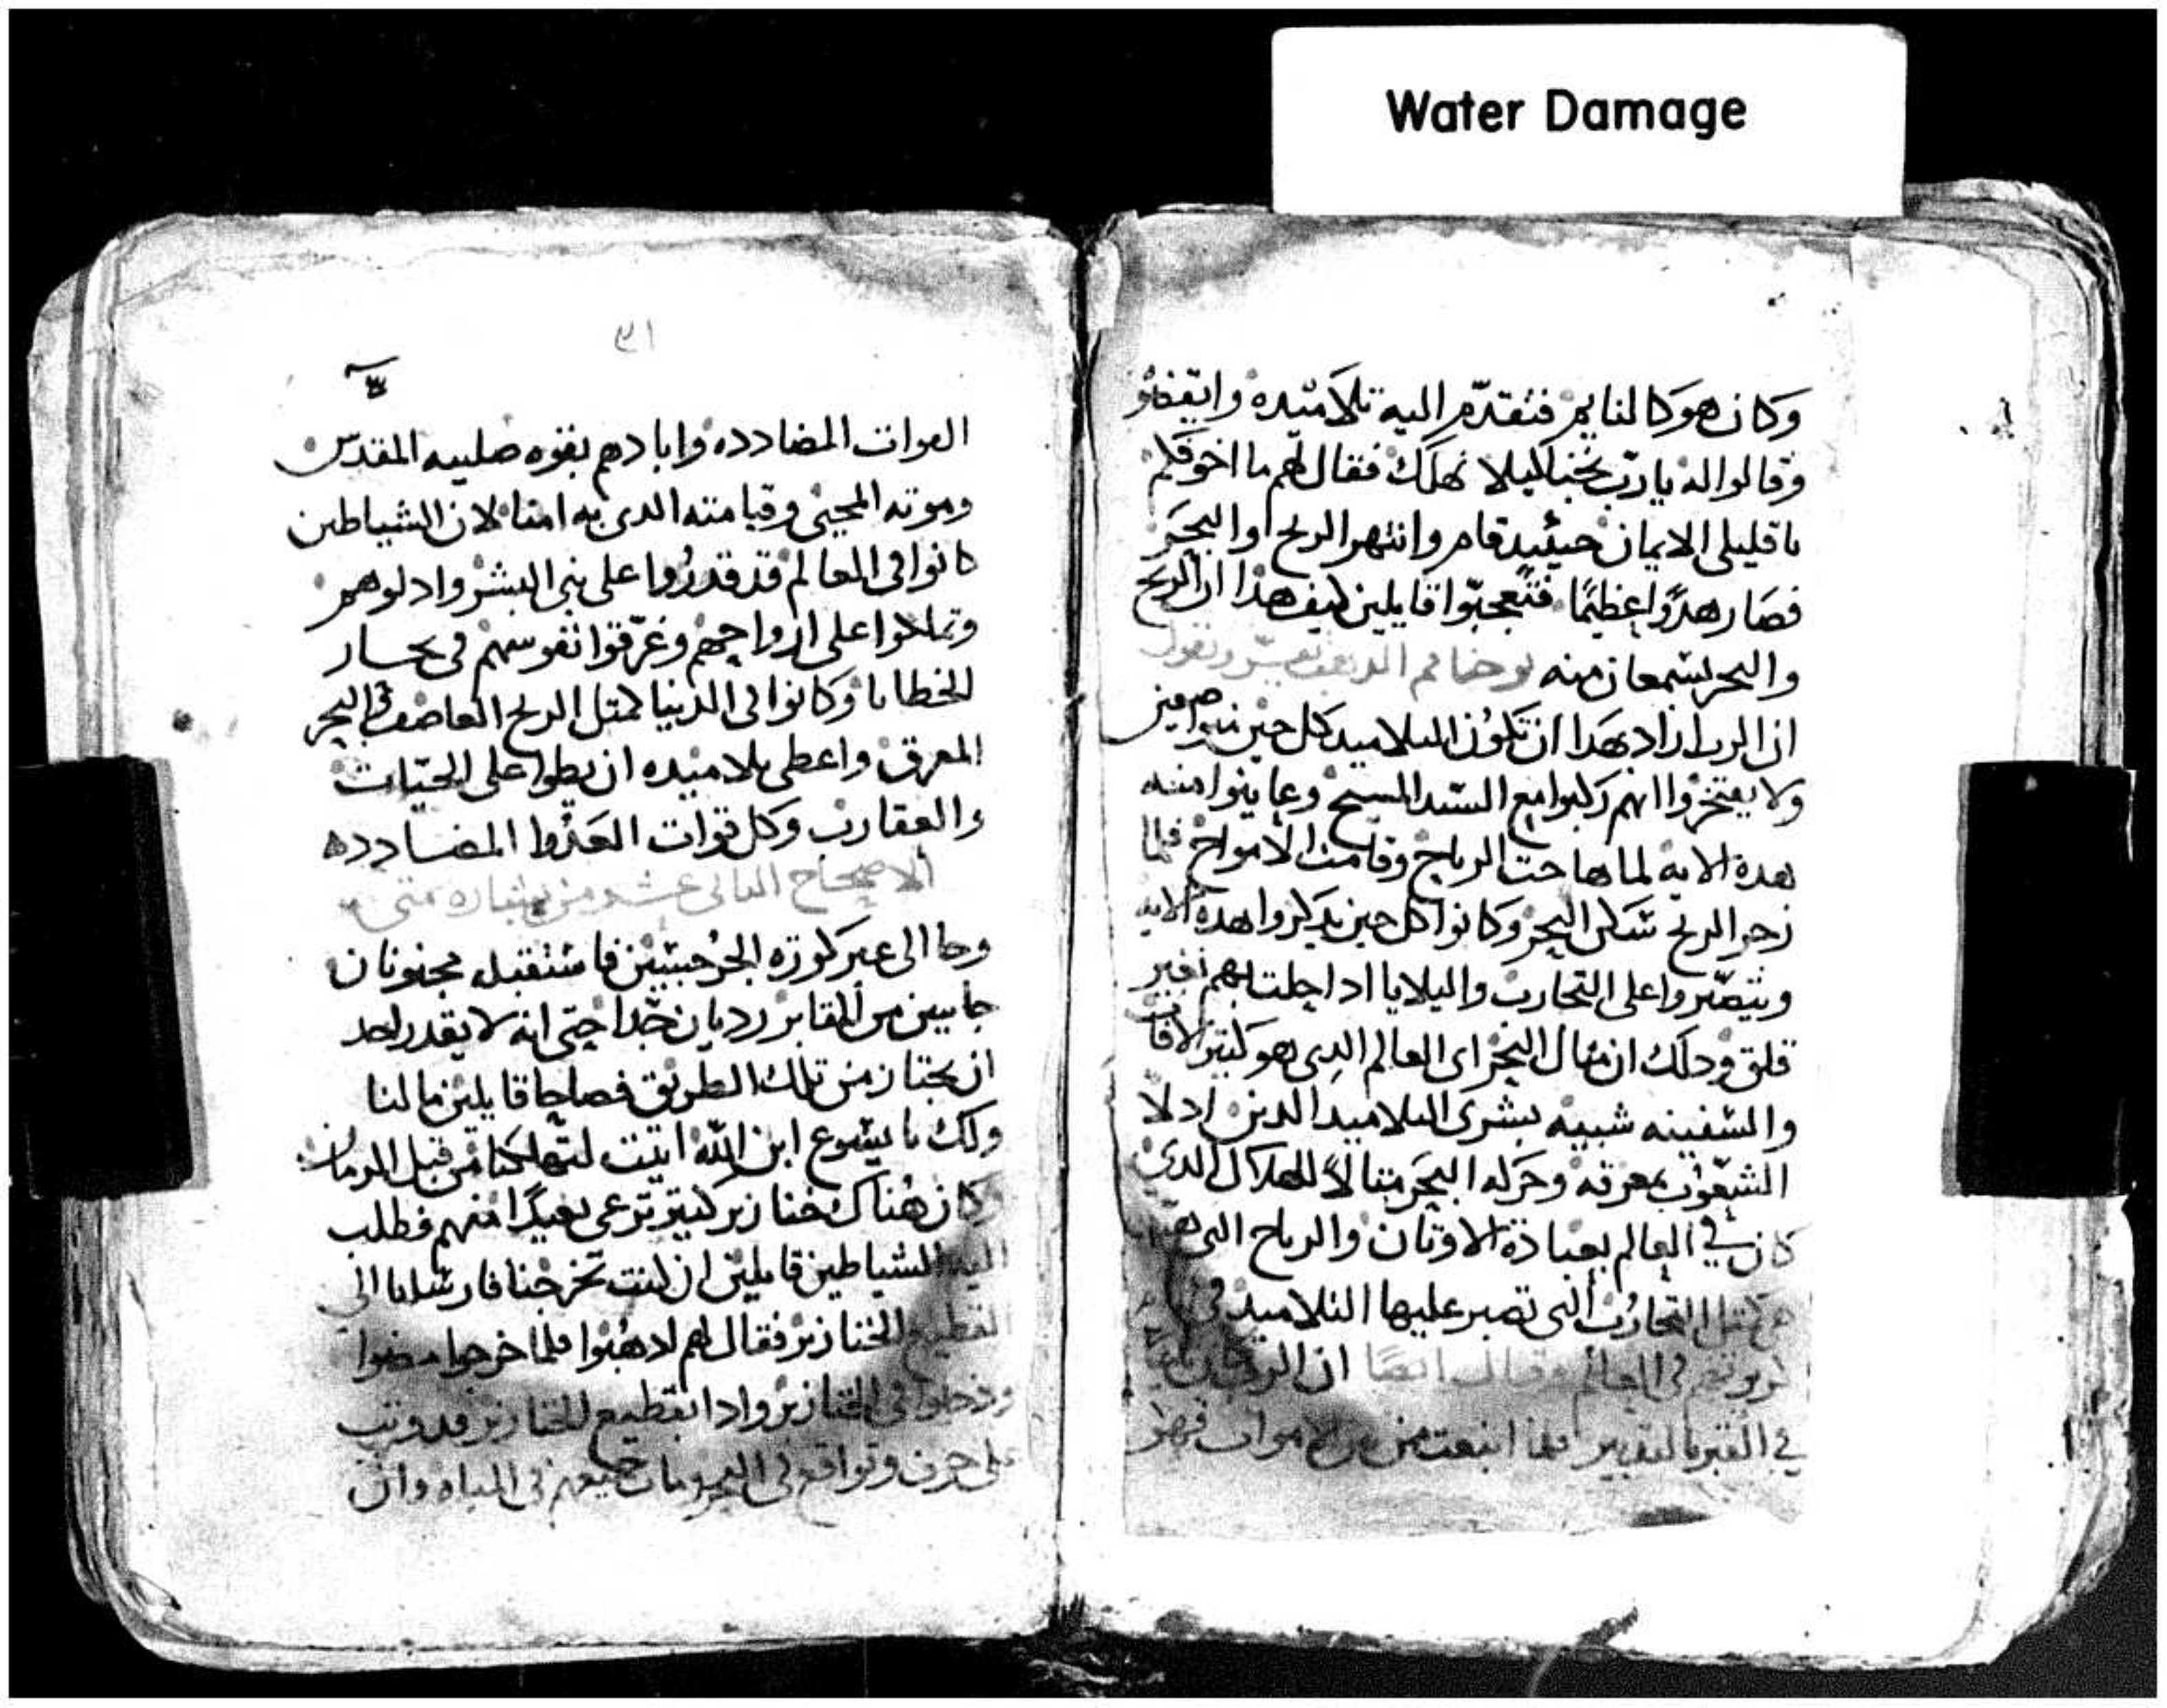 Water Damage
وكان هو كالنايم فتقدم اليه تلاميده وايقضوه
وقالوا له يارب نجنا ليلا نهلك فقال لهم ما اخوفكم
يا قليلى الايمان حينيد قام وانتهر الريح او البحر
فصار هدوا عظيما فتعجبوا قايلين كيف هذا ان الريح
والبحر يسمعان منه يوحنا فم الدهب يفسر ويقول
ان الرب اراد بهدا ان تكون التلاميد كل حين
ولا يفتخروا انهم ركبوا مع السيد المسيح وعاينوا منه
هده الايه لما هاجت الرياح وقامت الامواج فلما
زجر الريح سكن البحر وكانوا كل حين يدكروا هده الايه
ويتصبروا على التجارب والبلايا ادا حلت بهم بغير
قلق ودلك ان متال البحر اى العالم الدى هو كتير الافات
والسفينه شبيه بشرى التلاميد الدين
الشعوب بمعرفته وحركه البحر متالا للهلاك الدى
كان في العالم بعبادة الاوتان والرياح التى
التجارب التى تصبر عليها التلاميد فى
فى العالم وقال ايضا ان الرب
في القبر فلما انبعت من الاموات قهر
٣١
القوات المضادده وابادهم بقوه صليبه المقدس
وموته المحيى وقيامته الدى به امنا لان الشياطين
كانوا فى العالم قد قدروا على بنى البشر وادلوهم
وتملكوا على ارواحهم وغرقوا نفوسهم فى بحار
الخطايا وكانوا فى الدنيا كمتل الريح العاصف والبحر
المغرق واعطى تلاميده ان يطوا على الحيات
والعقارب وكل قوات العدوا المضادده
الاصحاح التانى عشر من بشاره متى
وجا الى عبر كورة الجرجسيين فاستقبله مجنونان
جايين من المقابر رديان جدا حتى انه لا يقدر احد
ان يجتاز من تلك الطريق فصاحا قايلين ما لنا
ولك يا يسوع ابن الله اتيت لتهلكنا من قبل الزمان
وكان هناك خنازير كتير ترعى بعيدا منهم فطلب
اليه الشياطين قايلين ان كنت تخرجنا فارسلنا الى
القطيع الخنازير فقال لهم ادهبوا فلما خرجوا مضوا
ودخلوا فى الخنازير وادا بقطيع الخنازير قد وتب
على جرف وتواقع فى البحر ومات جميعهم فى المياه وان